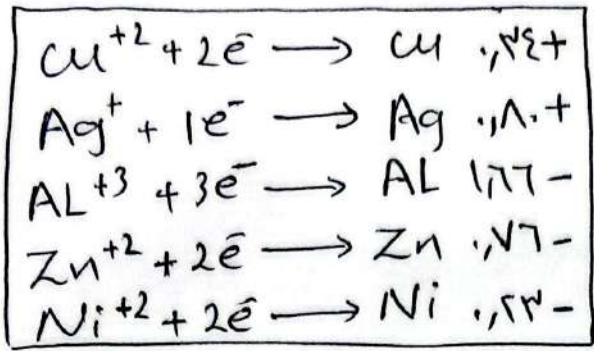 Cu⁺² + 2e⁻ → Cu ٠,٣٤+
Ag⁺ + 1e⁻ → Ag ٠,٨٠+
AL⁺³ + 3e⁻ → AL ١,٦٦−
Zn⁺² + 2e⁻ → Zn ٠,٧٦−
Ni⁺² + 2e⁻ → Ni ٠,٢٣−